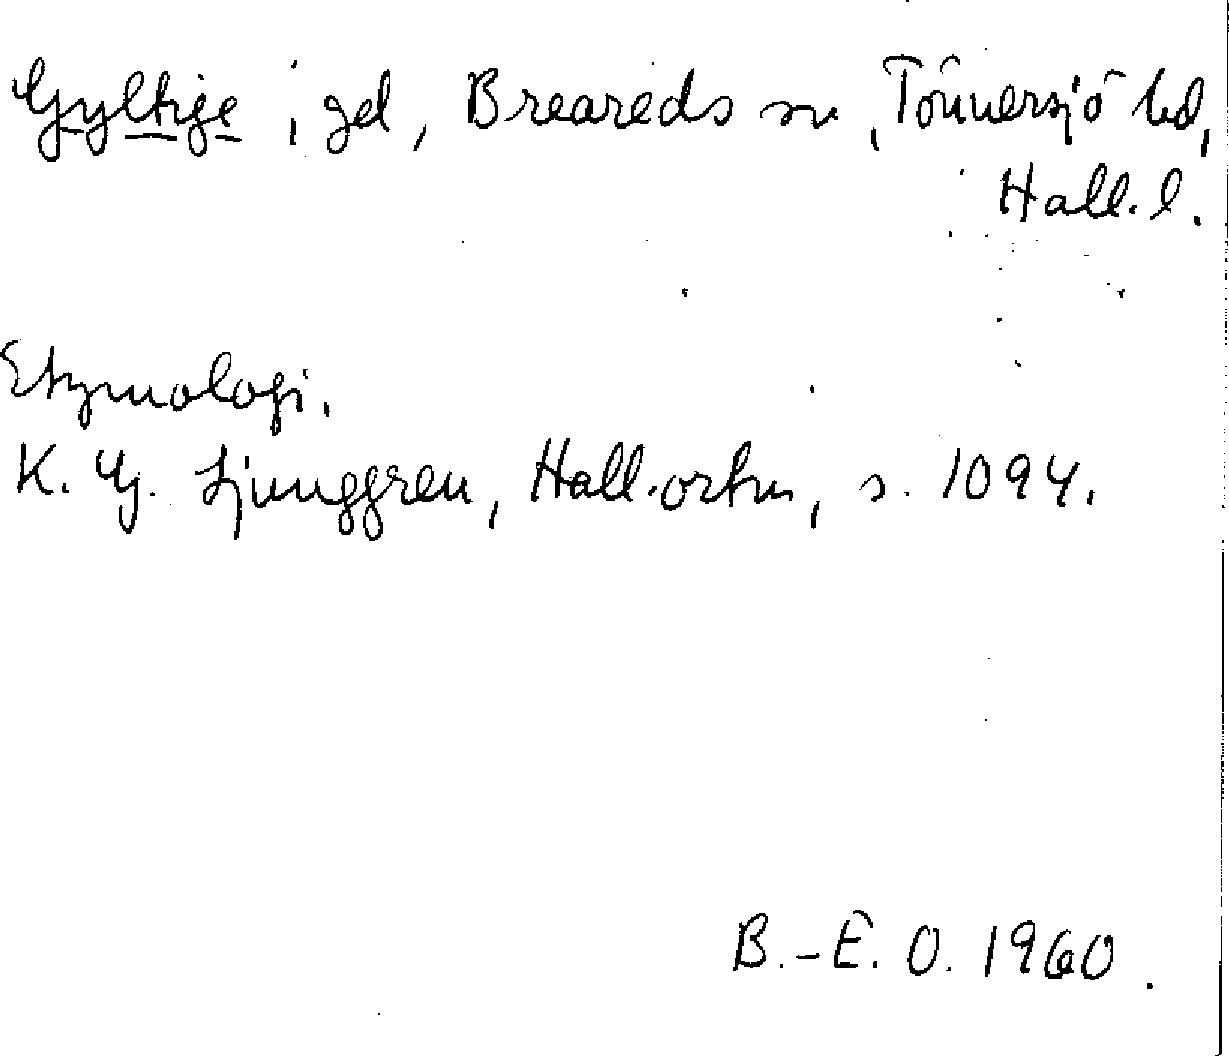 Gyltige, gd, Breareds sn, Tönnersjö hd,
Hall. l.
Etymologi.
K. G. Ljunggren, Hall. ortn, s. 1094.
B.-E. O. 1960.